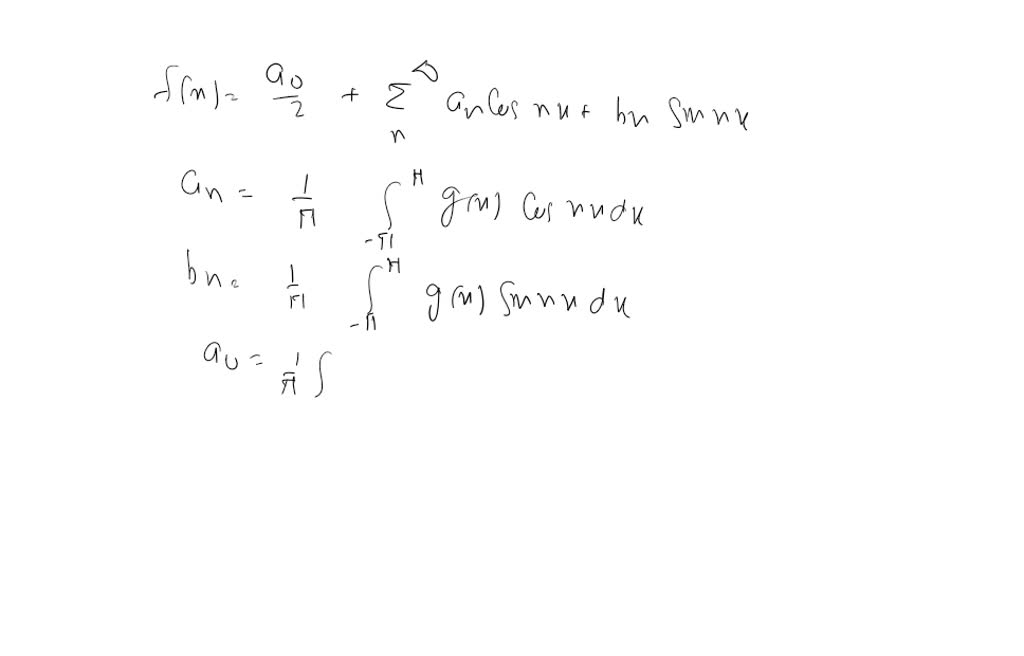 f(x) = a0/2 + Σ n ∞ an Cos nx + bn Sin nx
an = 1/π ∫ -π π g(x) Cos nx dx
bn = 1/π ∫ -π π g(x) Sin nx dx
a0 = 1/π ∫